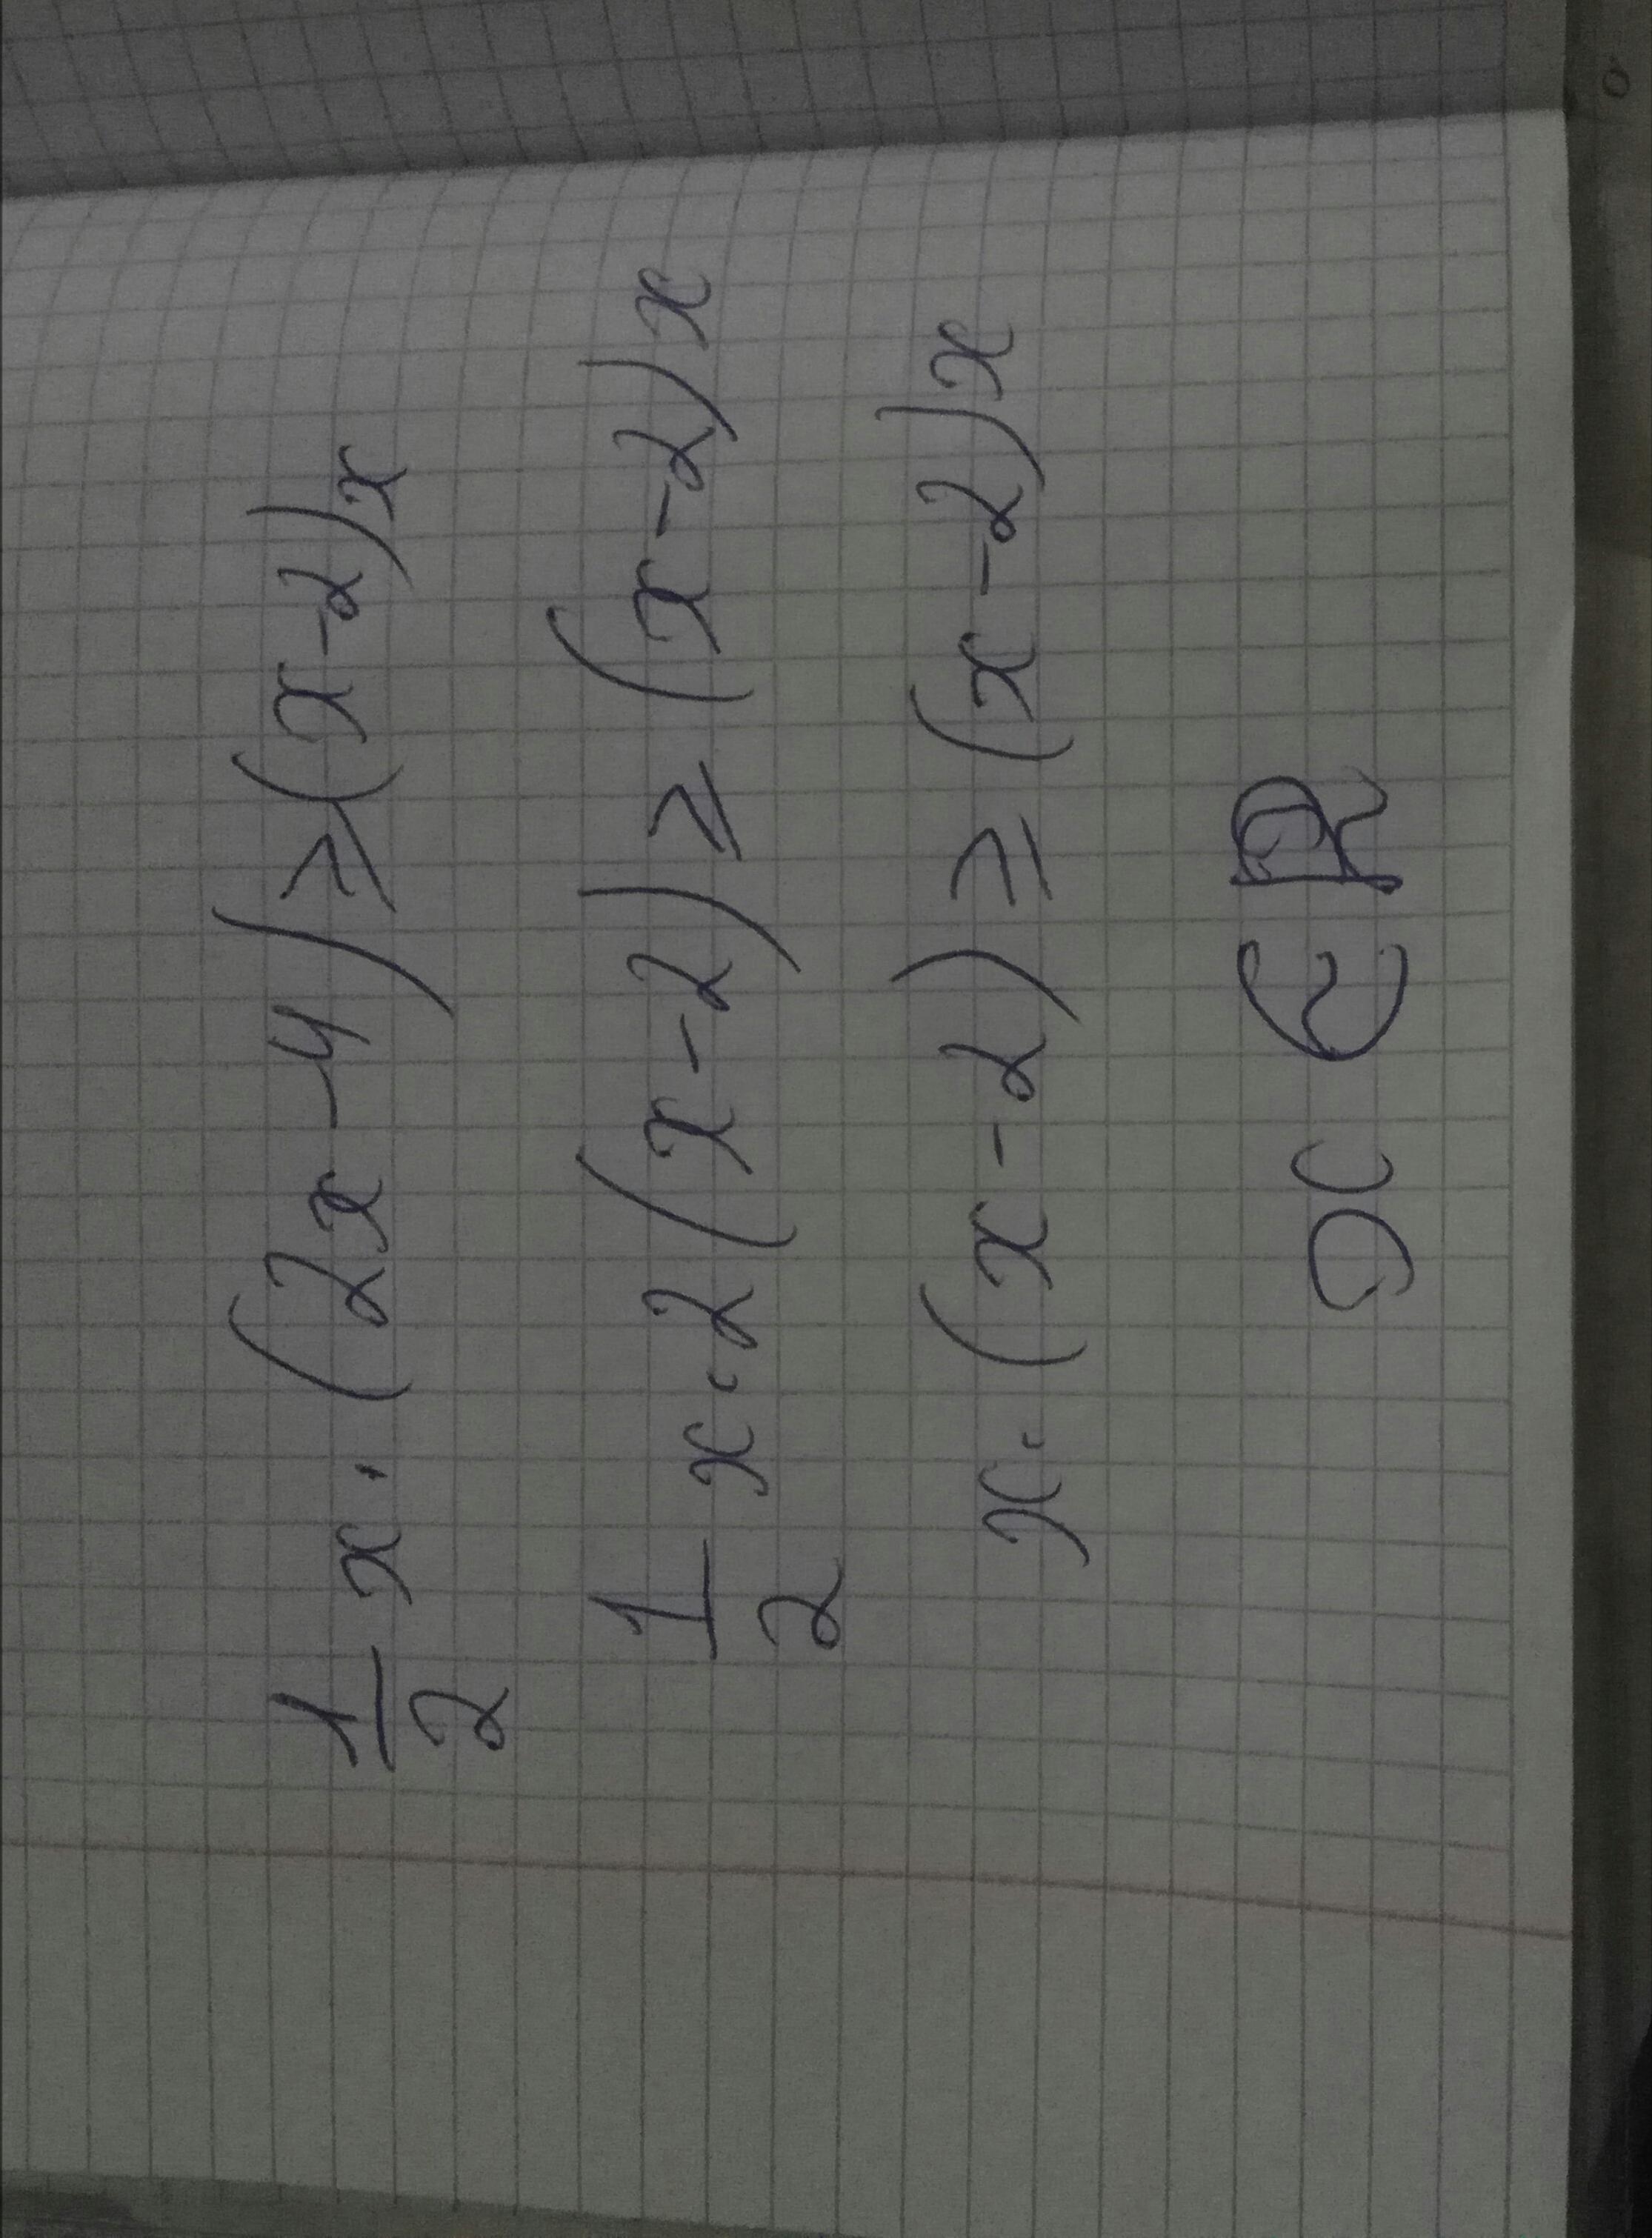 1/2 x · (2x - 4) ≥ (x - 2)x
1/2 x · 2(x - 2) ≥ (x - 2)x
x · (x - 2) ≥ (x - 2)x
x ∈ ℝ